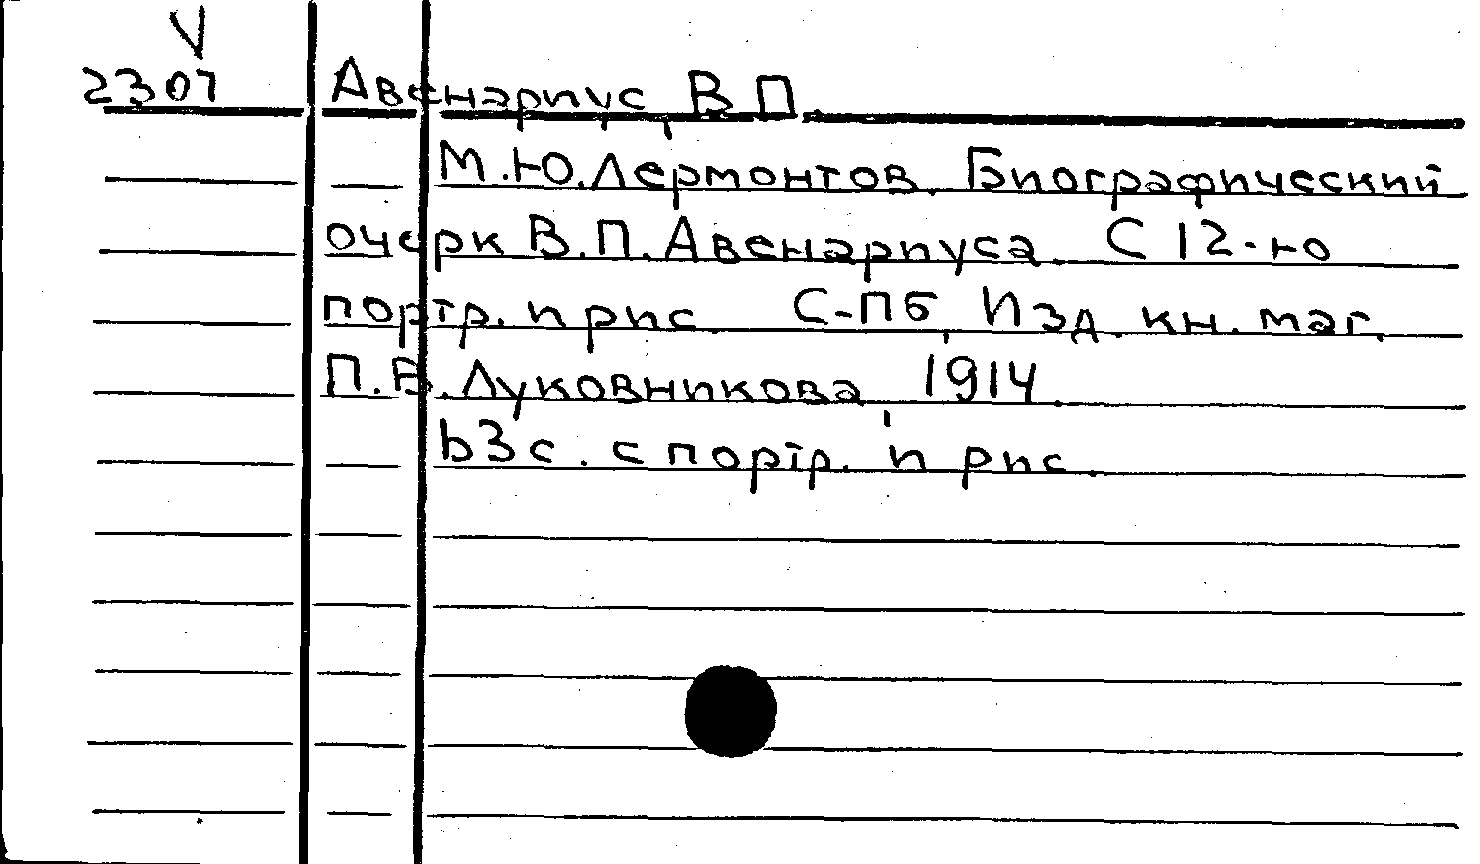 V
2307 Авенариус, В.П.
М.Ю.Лермонтов. Биографический
очерк В.П.Авенариуса. С 12-ю
портр. и рис. С-Пб, Изд. кн. маг.
П.В.Луковникова, 1914.
63с. с портр. и рис.